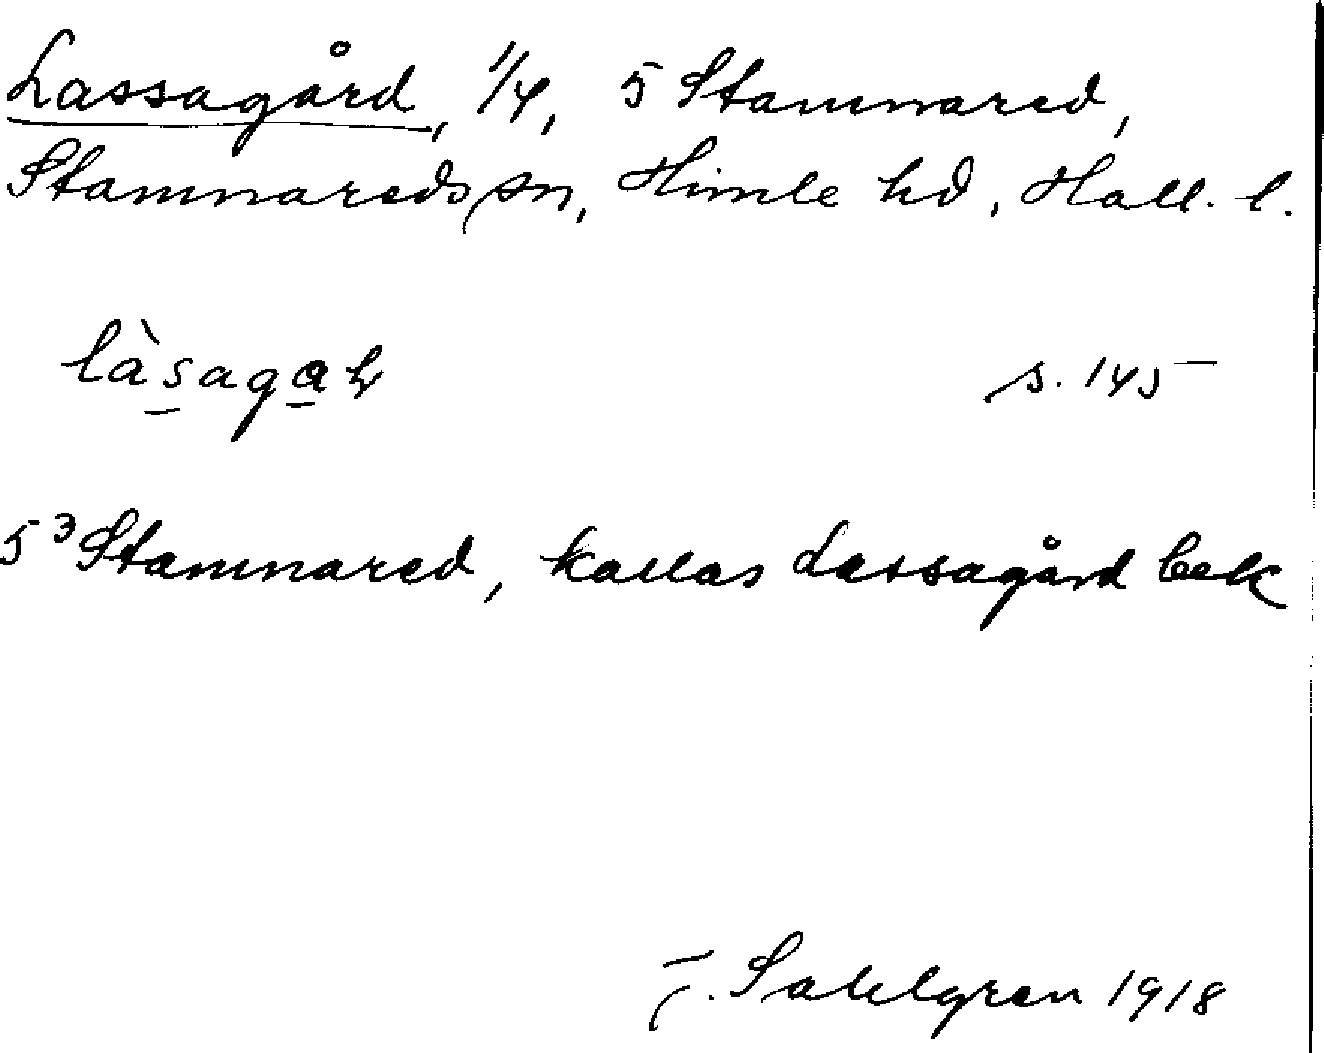 Lassagård, 1/4, 5 Stamnared,
Stamnareds sn, Himle hd, Hall. l.
s. 145
5³ Stamnared, kallas Lassagård bek
J. Sahlgren 1918